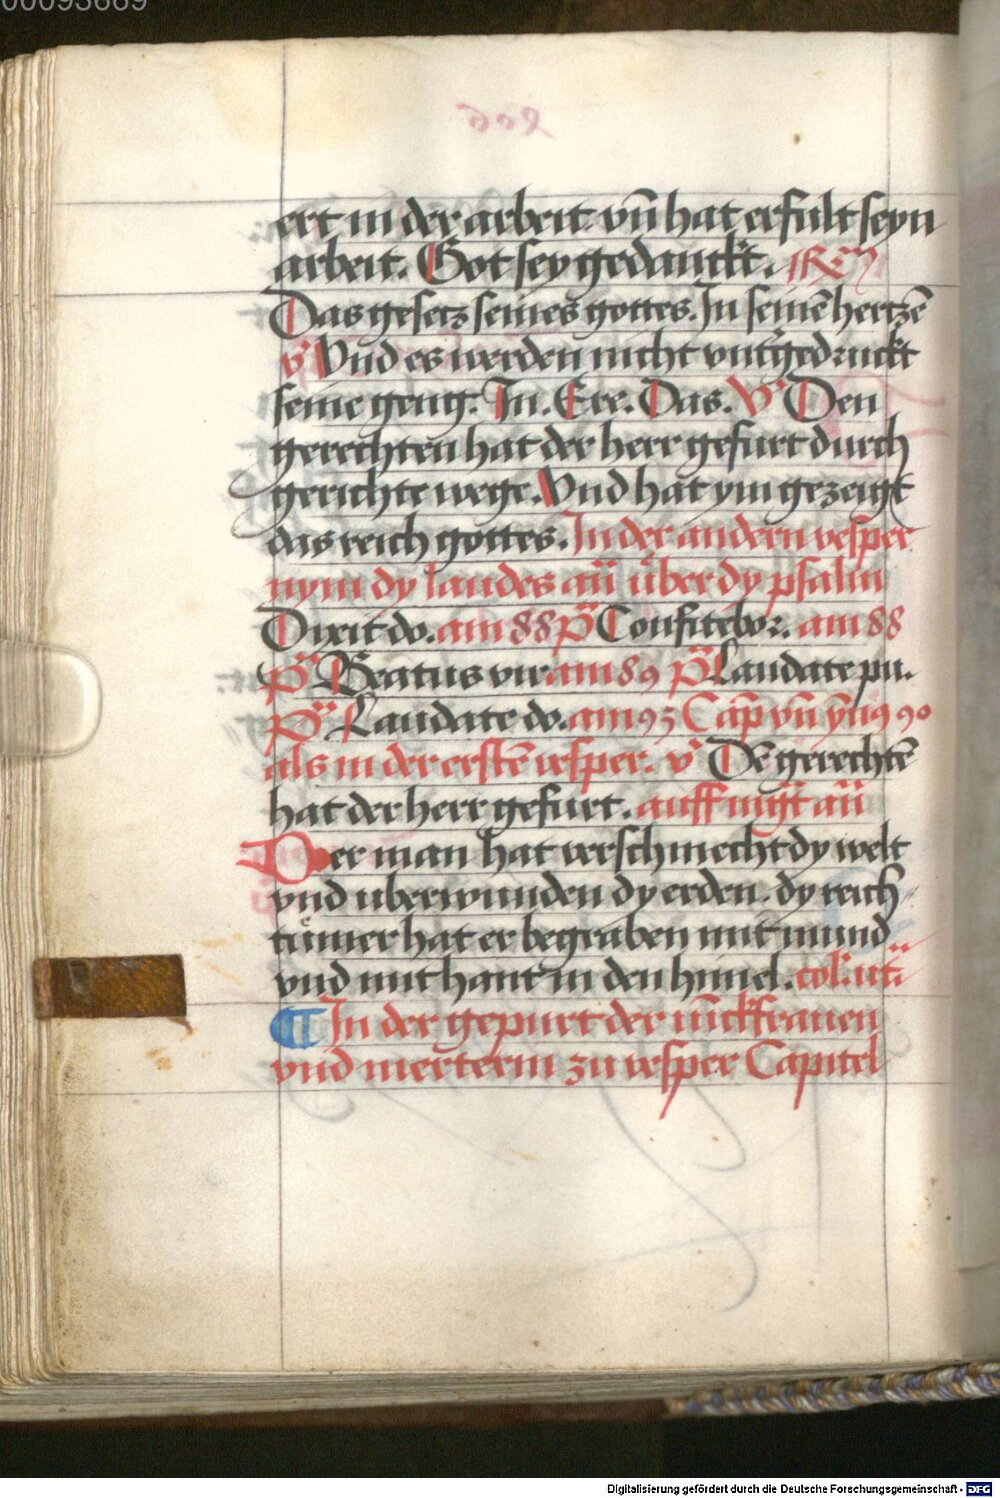 00093669
ert in der arbeit. vn̄ hat erfult seyn
arbeit. Got sey gedanckt.
Das gesetz seines gottes. In seinē hertzē
v̄ Vnd es werden nicht vnt̓gedruckt
seine geng. In. Ere. Das. V̄ Den
gerechten hat der herr gefurt durch
gerichte wege. Vnd hat ym gezeigt
das reich gottes. In der andern vesper
nym dy laudes an̄ über dy psalm
Dixit do. am 88 p̄ Confitebor. am 88
p̄ Beatus vir am 89 p̄ Laudate pu.
p̄ Laudate do. am 93 Cap̄ vn̄ ym9 90
als in der erstē vesper. v̄ Dē gerechtē
hat der herr gefurt. auff mgt̄ an̄
Der man hat verschmecht dy welt
vnd uberwunden dy erden. dy reich
tümer hat er begraben mit mund
vnd mit hant in den himel. col. ut.
¶ In der gepurt der iūckfrauen
vnd merterin zu vesper Capitel
Digitalisierung gefördert durch die Deutsche Forschungsgemeinschaft - DFG